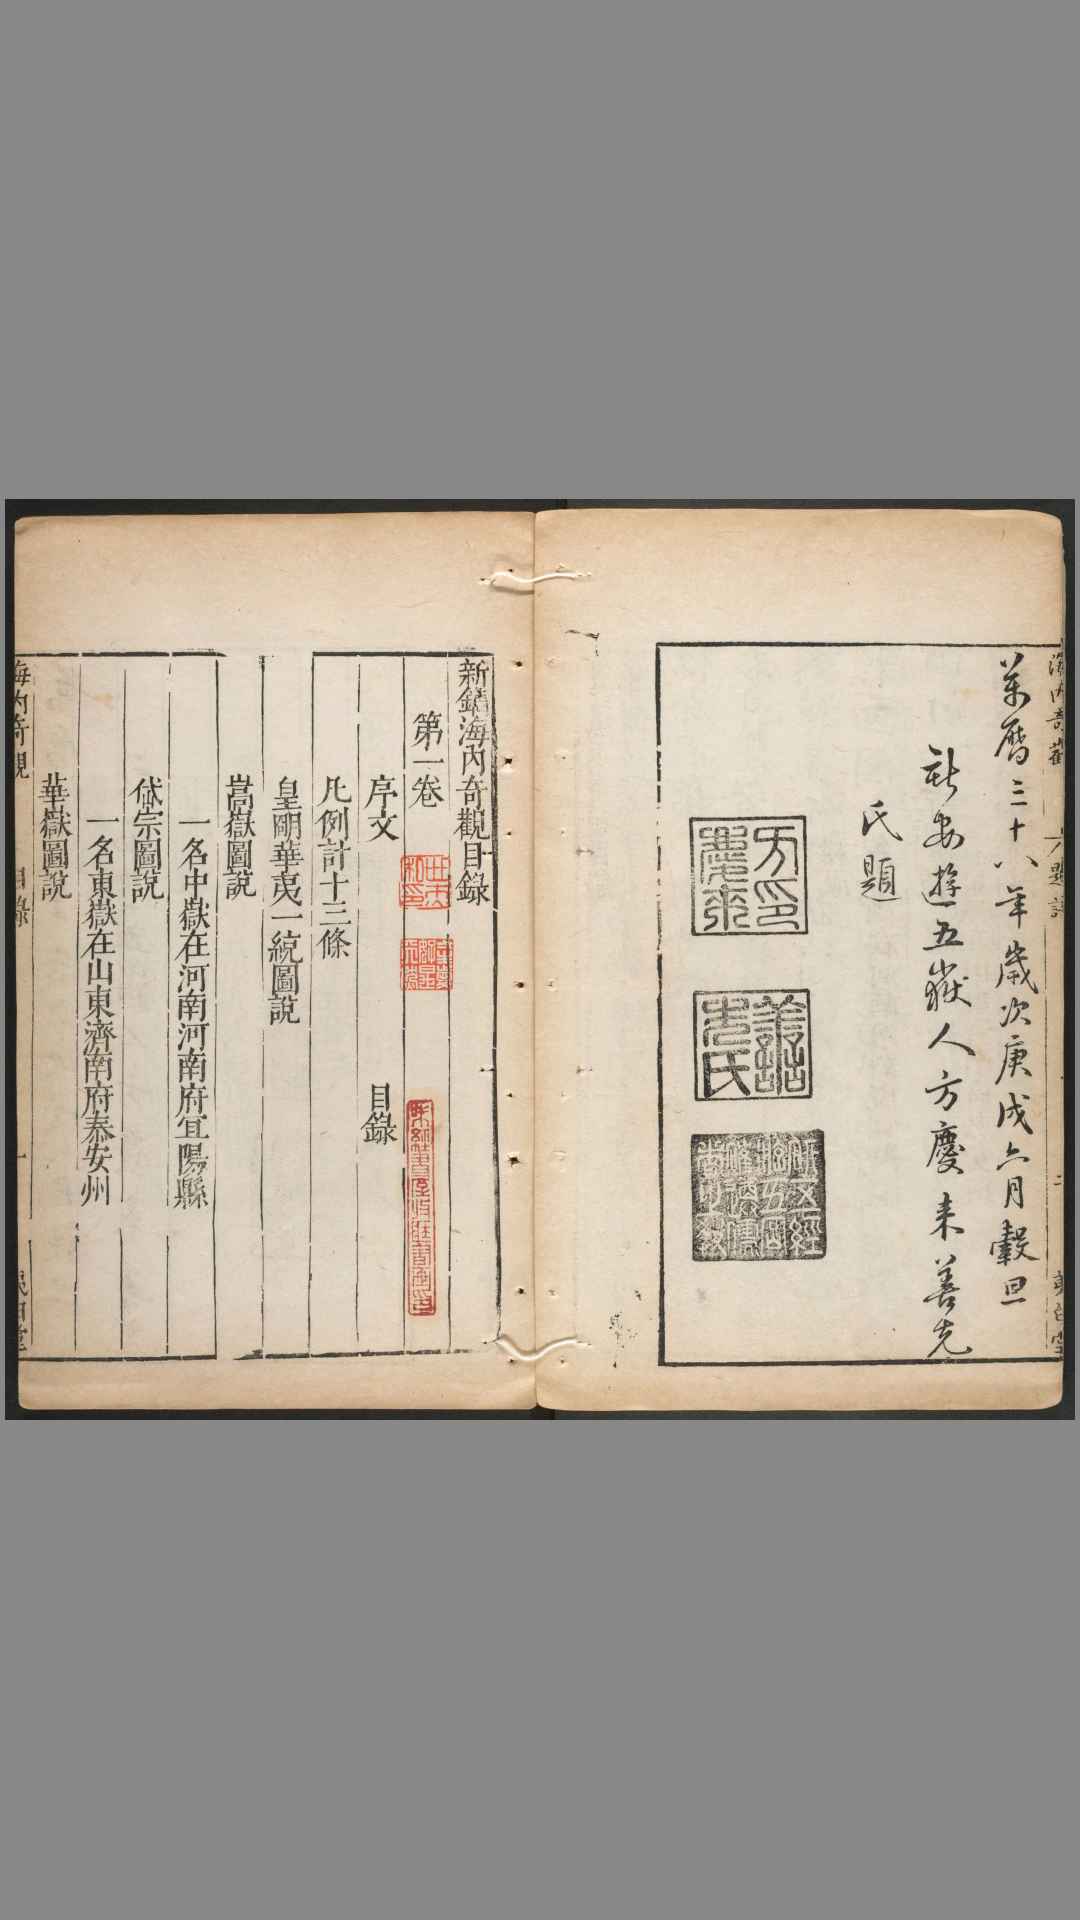 萬曆三十八年歲次庚戌六月穀旦
新安遊五嶽人方慶来善先
氏題
方印慶來
氏
新鐫海內奇觀目錄
第一卷
序文 目錄
凡例計十三條
皇明華夷一統圖說
嵩嶽圖說
一名中嶽在河南河南府宜陽縣
岱宗圖說
一名東嶽在山東濟南府泰安州
華嶽圖說
海內奇觀 目錄 一